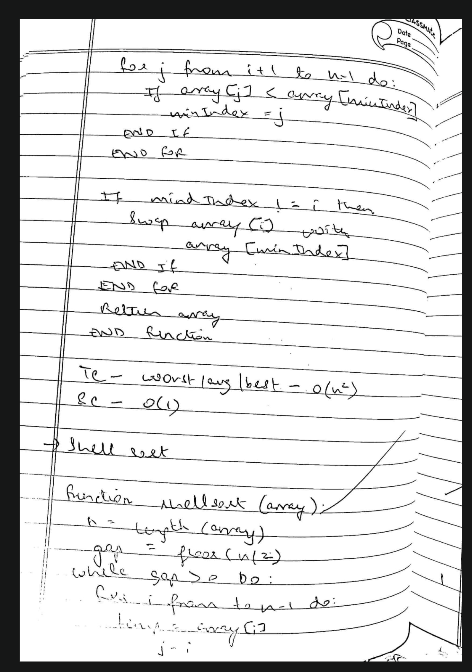 CLASSMATE
Date
Page
for j from i+1 to n-1 do:
If array[j] < array[minIndex]
minIndex = j
END IF
END FOR
If mindIndex != i then
Swap array[i] with
array[minIndex]
END If
END for
Return array
END function
TC - worst/avg/best - O(n²)
SC - O(1)
→ Shell sort
function shellsort (array):
n = length (array)
gap = floor(n/2)
while gap > 0 DO:
for i from to n-1 do:
temp = array[i]
j = i